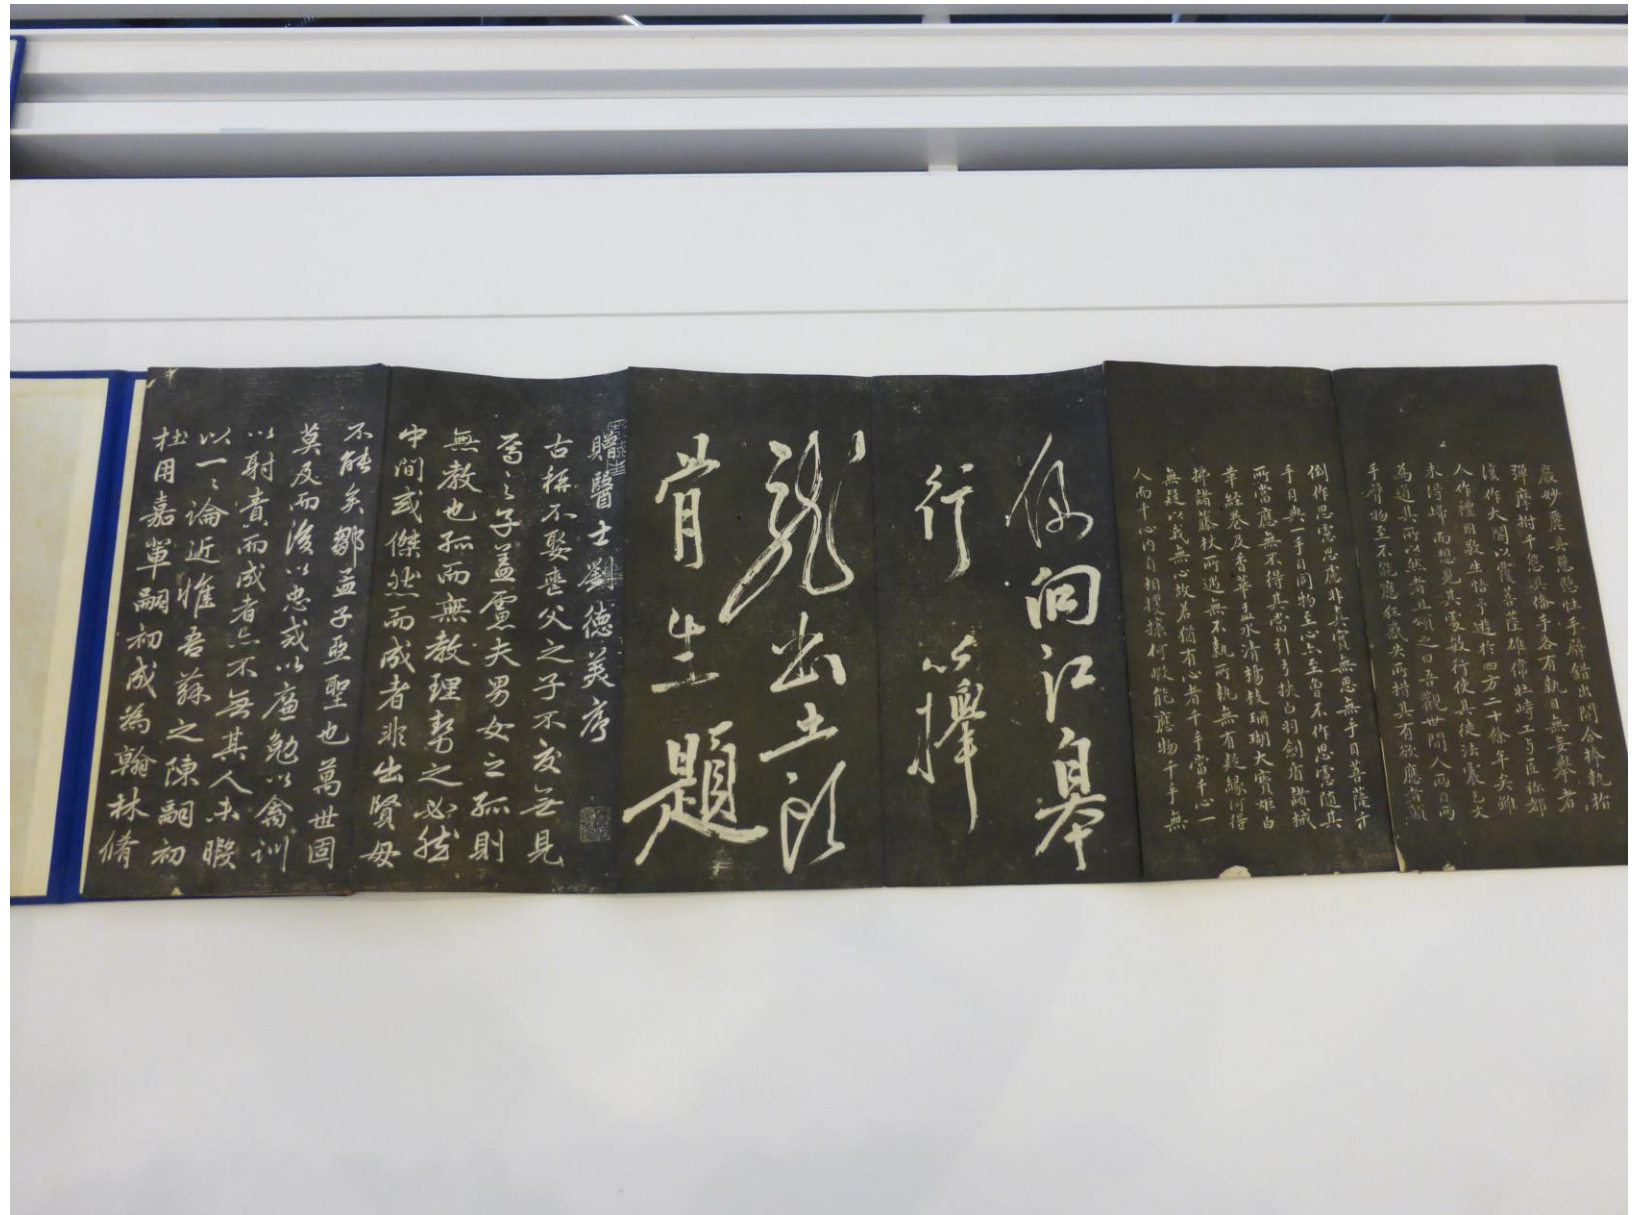 嚴妙麗具慈愍性手臂錯出開合捧執指
彈摩拊千態具備手各有執目無妄舉者
復作大閣以覆菩薩雄偉壯峙工与臣称都
人作禮因敬生悟予遊於四方二十餘年矣雖
未得歸而想見其處敏行使其徒法震乞文
為道其所以然者且頌之曰吾觀世間人两目两
手臂物至不能應狂惑失所措其有欲應者顛
倒作思慮思慮非真實無思無手目菩薩千
手目與一手目同物至心亦至曾不作思慮隨其
所當應無不得其當引弓挾白羽劍盾諸械
華經卷及香華盂水清楊枝珊瑚大寶炬白
拂諸藤杖所遇無不執所執無有疑緣何得
無疑以我無心故若猶有心者千手當千心一
人而千心內自相攫攘何暇能應物千手無
洞江皋
行
龍出土
肯生題
贈醫士劉德美序
古稱不娶喪父之子不友無見
焉之子蓋慮夫男女之孤則
無教也孤而無教理勢之必然
中間或傑然而成者非出賢母
不能矣鄒孟子亞聖也萬世固
莫及而後以忠或以廉勉以禽訓
以射責而成者亦不無其人未暇
以一一論近惟吾蘇之陳嗣初
杜用嘉單嗣初成為翰林脩